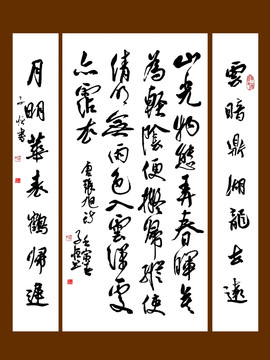 雲暗鼎湖龍去遠
山光物態弄春暉莫
為輕陰便擬歸縱使
晴明無雨色入雲深處
亦霑衣
唐張旭詩
月明華表鶴歸遲